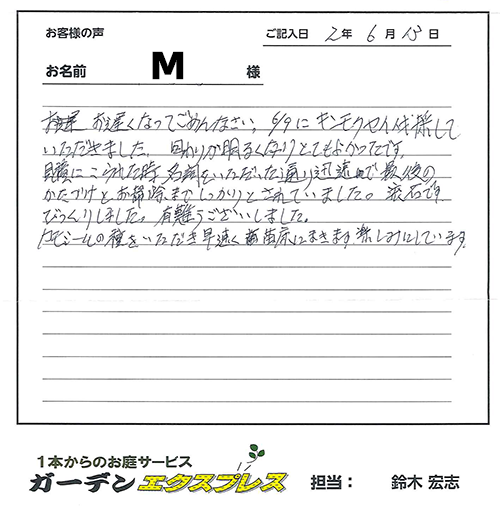 お客様の声 ご記入日 2年 6月 15日
お名前 M 様
お遅くなってごめんなさい。6/9にキンモクセイ伐採して
いただきました。回わりが明るくなりとてもよかったです。
見積にこられた時名刺をいただいた通り迅速 で最後の
かたづけとお掃除までしっかりとされていました。流石です
びっくりしました。有難うございしました。
の種をいただき早速く苗床にまきます。楽しみにしています。
1本からのお庭サービス
ガーデンエクスプレス 担当: 鈴木 宏志